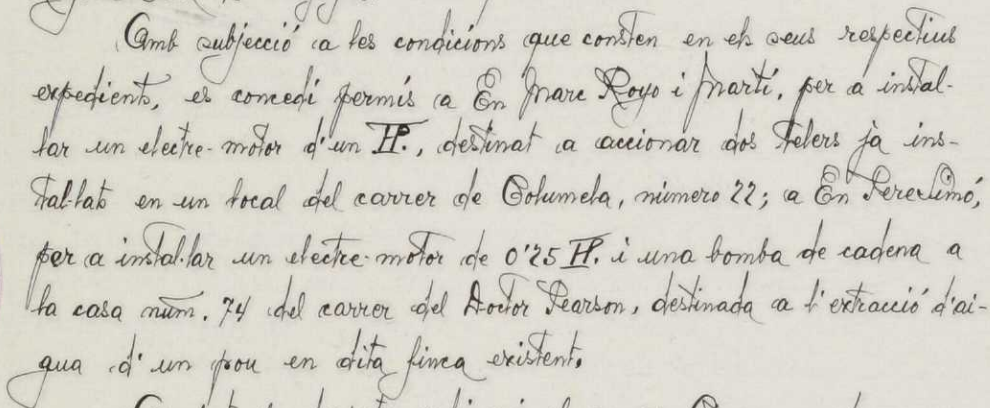 Amb subjecció a les condicions que consten en els seus respectius
expedients, es concedí permís a En Marc Royo i Martí, per a instal-
lar un electre-motor d'un HP., destinat a accionar dos telers já ins-
tal·lats en un local del carrer de Columela, número 22; a En Pere Simó,
per a instal·lar un electre-motor de 0'25 HP. i una bomba de cadena a
la casa núm. 74 del carrer del Doctor Pearson, destinada a l'extracció d'ai-
gua d'un pou en dita finca existent.